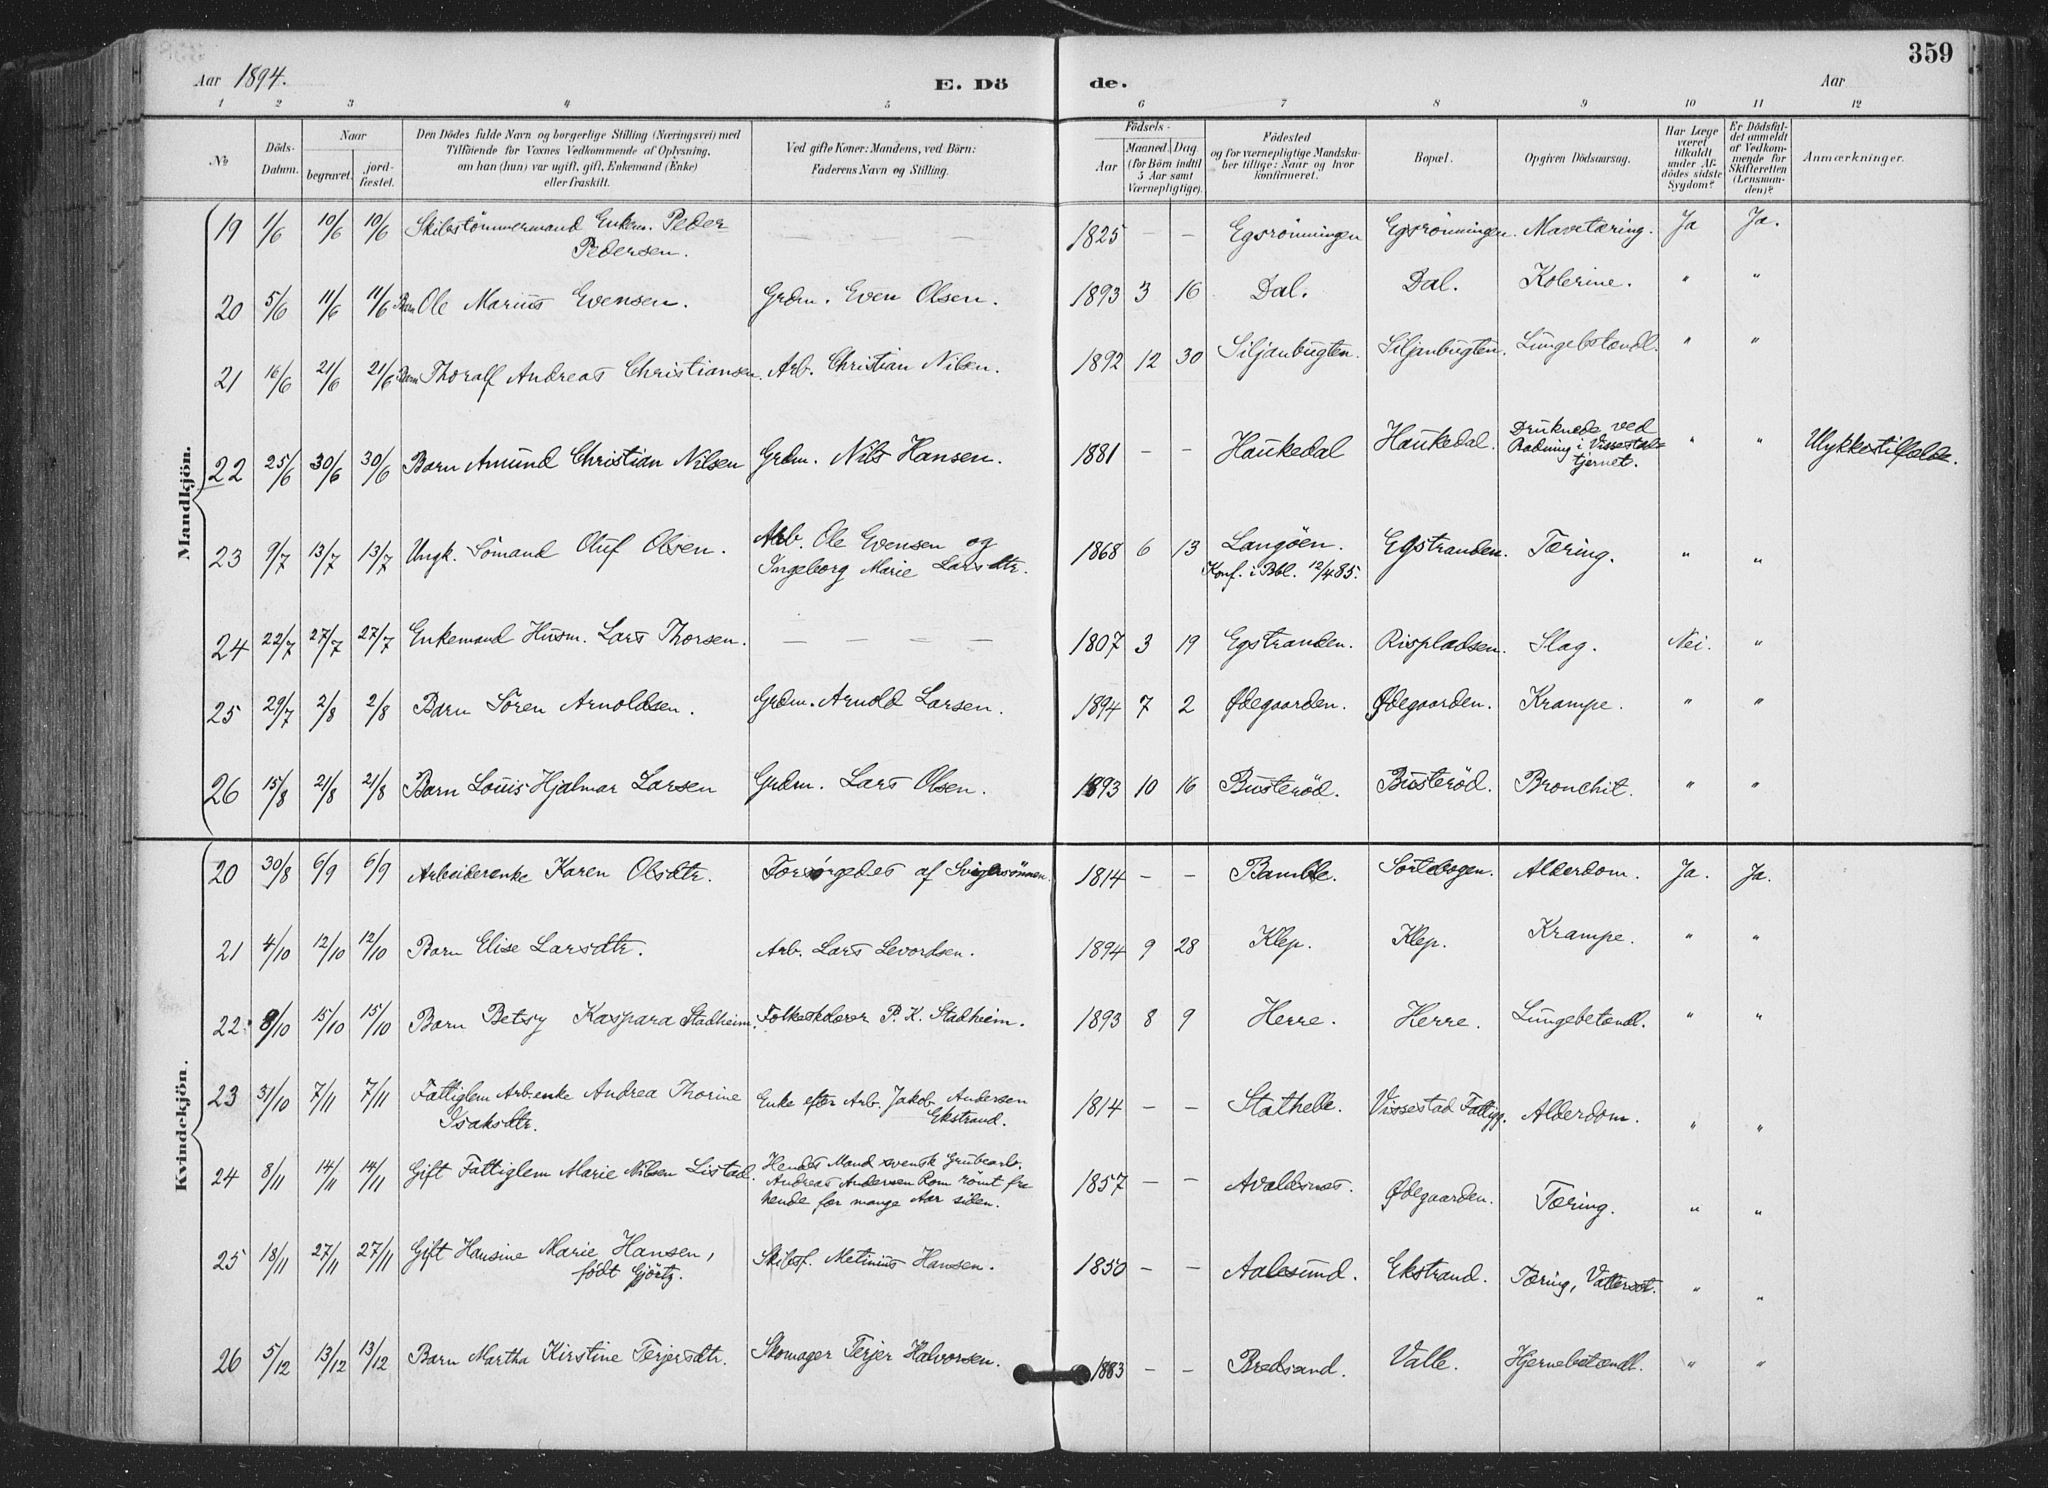 359
Aar 1894. E. Dö de. Aar
1 2 3 4 5 6 7 8 9 10 11 12
No Döds-Datum. Naar begravet. jord-fæstet. Den Dödes fulde Navn og borgerlige Stilling (Næringsvei) med Tilföiende for Voxnes Vedkommende af Oplysning, om han (hun) var ugift, gift, Enkemand (Enke) eller fraskilt. Ved gifte Koner: Mandens, ved Börn: Faderens Navn og Stilling. Födsels- Aar Maaned. Dag. (for Börn indtil 5 Aar samt Værnepligtige). Födested og for værnepligtige Mandska-ber tillige: Naar og hvor konfirmeret. Bopæl. Opgiven Dödsaarsag. Har Læge været tilkaldt under Af-dödes sidste Sygdom? Er Dödsfal-det anmeldt af Vedkom-mende for Skifteretten (Lensman-den)? Anmærkninger.
Mandkjön.
19 1/6 10/6 10/6 Skibstömmermand Enkem. Peder Pedersen. — — 1825 — — Egsrönningen Egsrönningen. Mavetæring. Ja Ja.
20 5/6 11/6 11/6 Barn Ole Marius Evensen. Grdm. Even Olsen. 1893 3 16 Dal. Dal. Kolerine. " "
21 16/6 21/6 21/6 Barn Thoralf Andreas Christiansen. Arb. Christian Nilsen. 1892 12 30 Siljanbugten. Siljanbugten. Lungebetændl. " "
22 25/6 30/6 30/6 Barn Amund Christian Nilsen Grdm. Nils Hansen. 1881 — — Haukedal Haukedal. Druknede ved Badning i Vissestad-tjernet. " " Ulykkestilfælde.
23 9/7 13/7 13/7 Ungk. Sömand Oluf Olsen. Arb. Ole Evensen og Ingeborg Marie Larsdtr. 1868 6 13 Langöen. Konf. i Bbl. 12/4 85. Egstranden. Tæring. " "
24 22/7 27/7 27/7 Enkemand Husm. Lars Thorsen. — — — — 1807 3 19 Egstranden. Rispladsen. Slag. Nei. "
25 29/7 2/8 2/8 Barn Sören Arnoldsen. Grdm. Arnold Larsen. 1894 7 2 Ødegaarden. Ødegaarden. Krampe. " "
26 15/8 21/8 21/8 Barn Louis Hjalmar Larsen Grdm. Lars Olsen. 1893 10 16 Busteröd. Busteröd. Bronchit. " "
Kvindekjön.
20 30/8 6/9 6/9 Arbeiderenke Karen Olsdtr. Forsörgedes af Svigersönnen. 1814 — — Bamble. Sortebogen. Alderdom. Ja. Ja.
21 4/10 12/10 12/10 Barn Elise Larsdtr. Arb. Lars Levordsen. 1894 9 28 Klep. Klep. Krampe. " "
22 8/10 15/10 15/10 Barn Betsy Kaspara Stadheim. Folkeskolelærer P. K. Stadheim. 1893 8 9 Herre. Herre. Lungebetændl. " "
23 31/10 7/11 7/11 Fattiglem Arb.enke Andrea Thorine Isaksdtr. Enke efter Arb. Jakob Andersen Ekstrand. 1814 — — Stathelle. Vissestad Fattigg. Alderdom. " "
24 8/11 14/11 14/11 Gift Fattiglem Marie Nilsen Listad. Hendes Mand svensk Grubearb. Andreas Andersen Rom römt fra hende for mange Aar siden. 1857 — — Avaldsnes. Ødegaarden. Tæring. " "
25 18/11 27/11 27/11 Gift Hansine Marie Hansen, födt Gjörtz. Skibsf. Metinius Hansen. 1850 — — Aalesund. Ekstrand. Tæring, Vattersot. " "
26 5/12 13/12 13/12 Barn Martha Kirstine Terjersdtr. Skomager Terjer Halvorsen. 1883 — — Bredsand. Valle. Hjernebetændl. " "